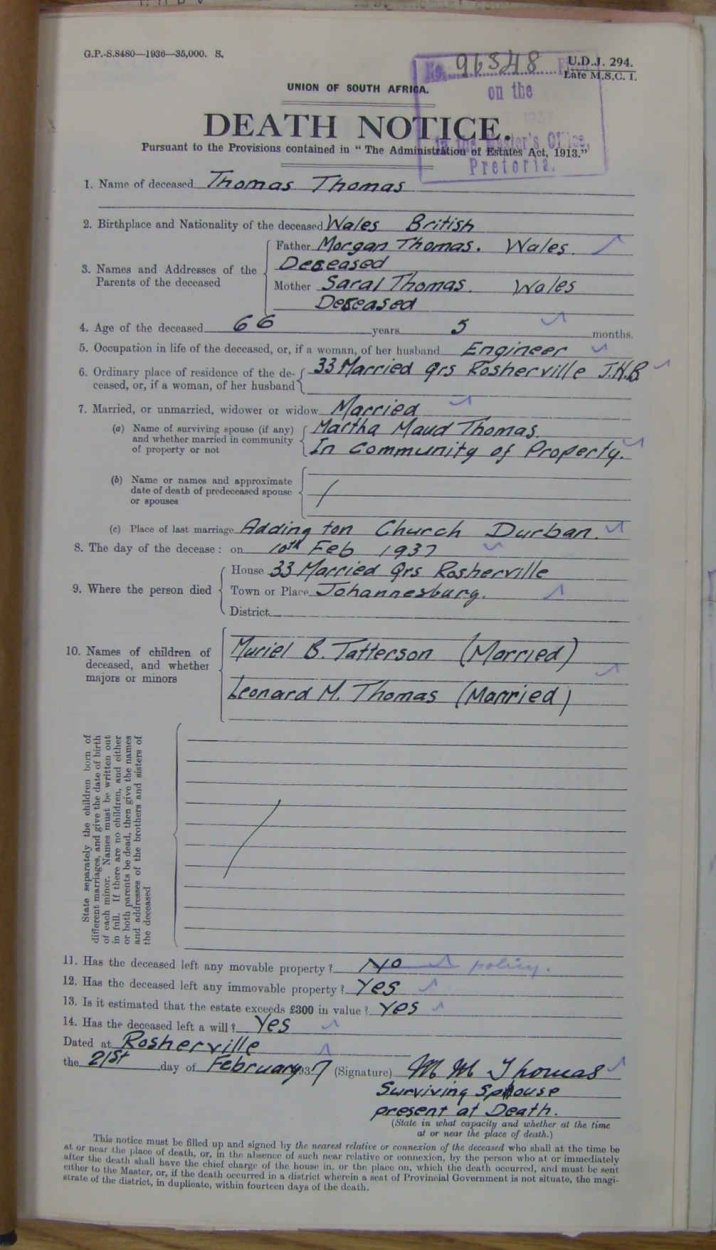 G.P.-S.8480—1936—35,000. S.
No. 96348
U.D.J. 294.
Late M.S.C. 1.
on the
UNION OF SOUTH AFRICA.
DEATH NOTICE.
in the Master's Office,
Pretoria.
Pursuant to the Provisions contained in "The Administration of Estates Act, 1913."
1. Name of deceased Thomas Thomas
2. Birthplace and Nationality of the deceased Wales British
3. Names and Addresses of the Parents of the deceased
Father Morgan Thomas. Wales
Deceased
Mother Saral Thomas. Wales
Deceased
4. Age of the deceased 66 years 5 months.
5. Occupation in life of the deceased, or, if a woman, of her husband Engineer
6. Ordinary place of residence of the de-
ceased, or, if a woman, of her husband
33 Married Qrs Rosherville J.H.B
7. Married, or unmarried, widower or widow Married
(a) Name of surviving spouse (if any)
and whether married in community
of property or not
Martha Maud Thomas
In Community of Property.
(b) Name or names and approximate
date of death of predeceased spouse
or spouses
(c) Place of last marriage Addington Church Durban.
8. The day of the decease: on 10th Feb 1937
9. Where the person died
House 33 Married Qrs Rosherville
Town or Place Johannesburg.
District
10. Names of children of
deceased, and whether
majors or minors
Muriel B. Tatterson (Married)
Leonard M. Thomas (Married)
State separately the children born of
different marriages, and give the date of birth
of each minor. Names must be written out
in full. If there are no children, and either
or both parents be dead, then give the names
and addresses of the brothers and sisters of
the deceased
11. Has the deceased left any movable property? No policy.
12. Has the deceased left any immovable property? Yes
13. Is it estimated that the estate exceeds £300 in value? Yes
14. Has the deceased left a will? Yes
Dated at Rosherville
the 21st day of February 1937 (Signature) M M Thomas
Surviving Spouse
present at Death.
(State in what capacity and whether at the time
at or near the place of death.)
This notice must be filled up and signed by the nearest relative or connexion of the deceased who shall at the time be
at or near the place of death, or, in the absence of such near relative or connexion, by the person who at or immediately
after the death shall have the chief charge of the house in, or the place on, which the death occurred, and must be sent
either to the Master, or, if the death occurred in a district wherein a seat of Provincial Government is not situate, the magi-
strate of the district, in duplicate, within fourteen days of the death.